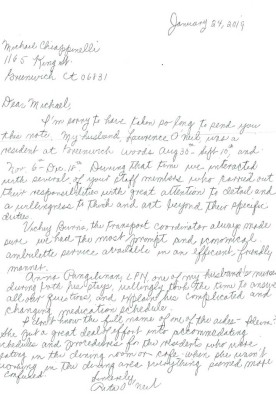 January 24, 2019
Michael Chiappinelli
1165 King St.
Greenwich CT 06831
Dear Michael,
I'm sorry to have taken so long to send you
this note. My husband, Lawrence O'Neil was a
resident at Greenwich Woods Aug 30th - Sept 10th and
Nov 6th - Dec. 18th. During that time we interacted
with several of your staff members who carried out
their responsibilities with great attention to detail and
a willingness to think and act beyond their specific
duties.
Vicky Burns, the Transport Coordinator always made
sure we had the most prompt and economical
ambulette service available in an efficient, friendly
manner.
Donna Pangilinan, LPN, one of my husband's nurses
during both his stays, willingly took the time to answer
all our questions, and explain his complicated and
changing medication schedule.
I don't know the full name of one of the aides -
She put a great deal of effort into accommodating
schedules and procedures for the residents who were
eating in the dining room or cafe. When she wasn't
working in the dining area everything seemed more
confused.
Sincerely,
O'Neil